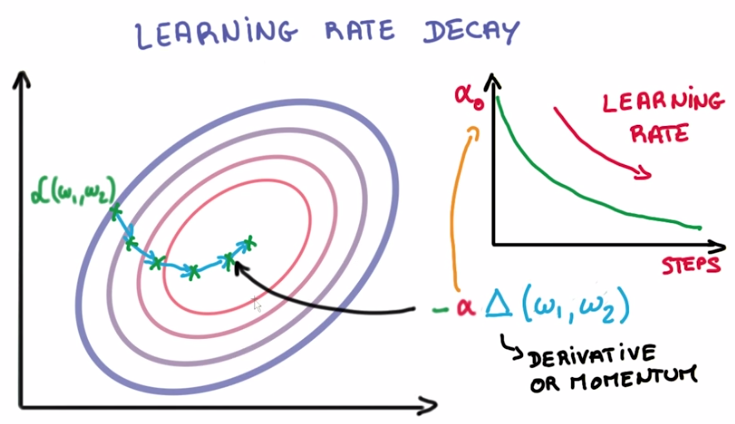 LEARNING RATE DECAY
α₀
LEARNING
RATE
STEPS
ℒ(ω₁,ω₂)
- α Δ (ω₁,ω₂)
DERIVATIVE
OR MOMENTUM